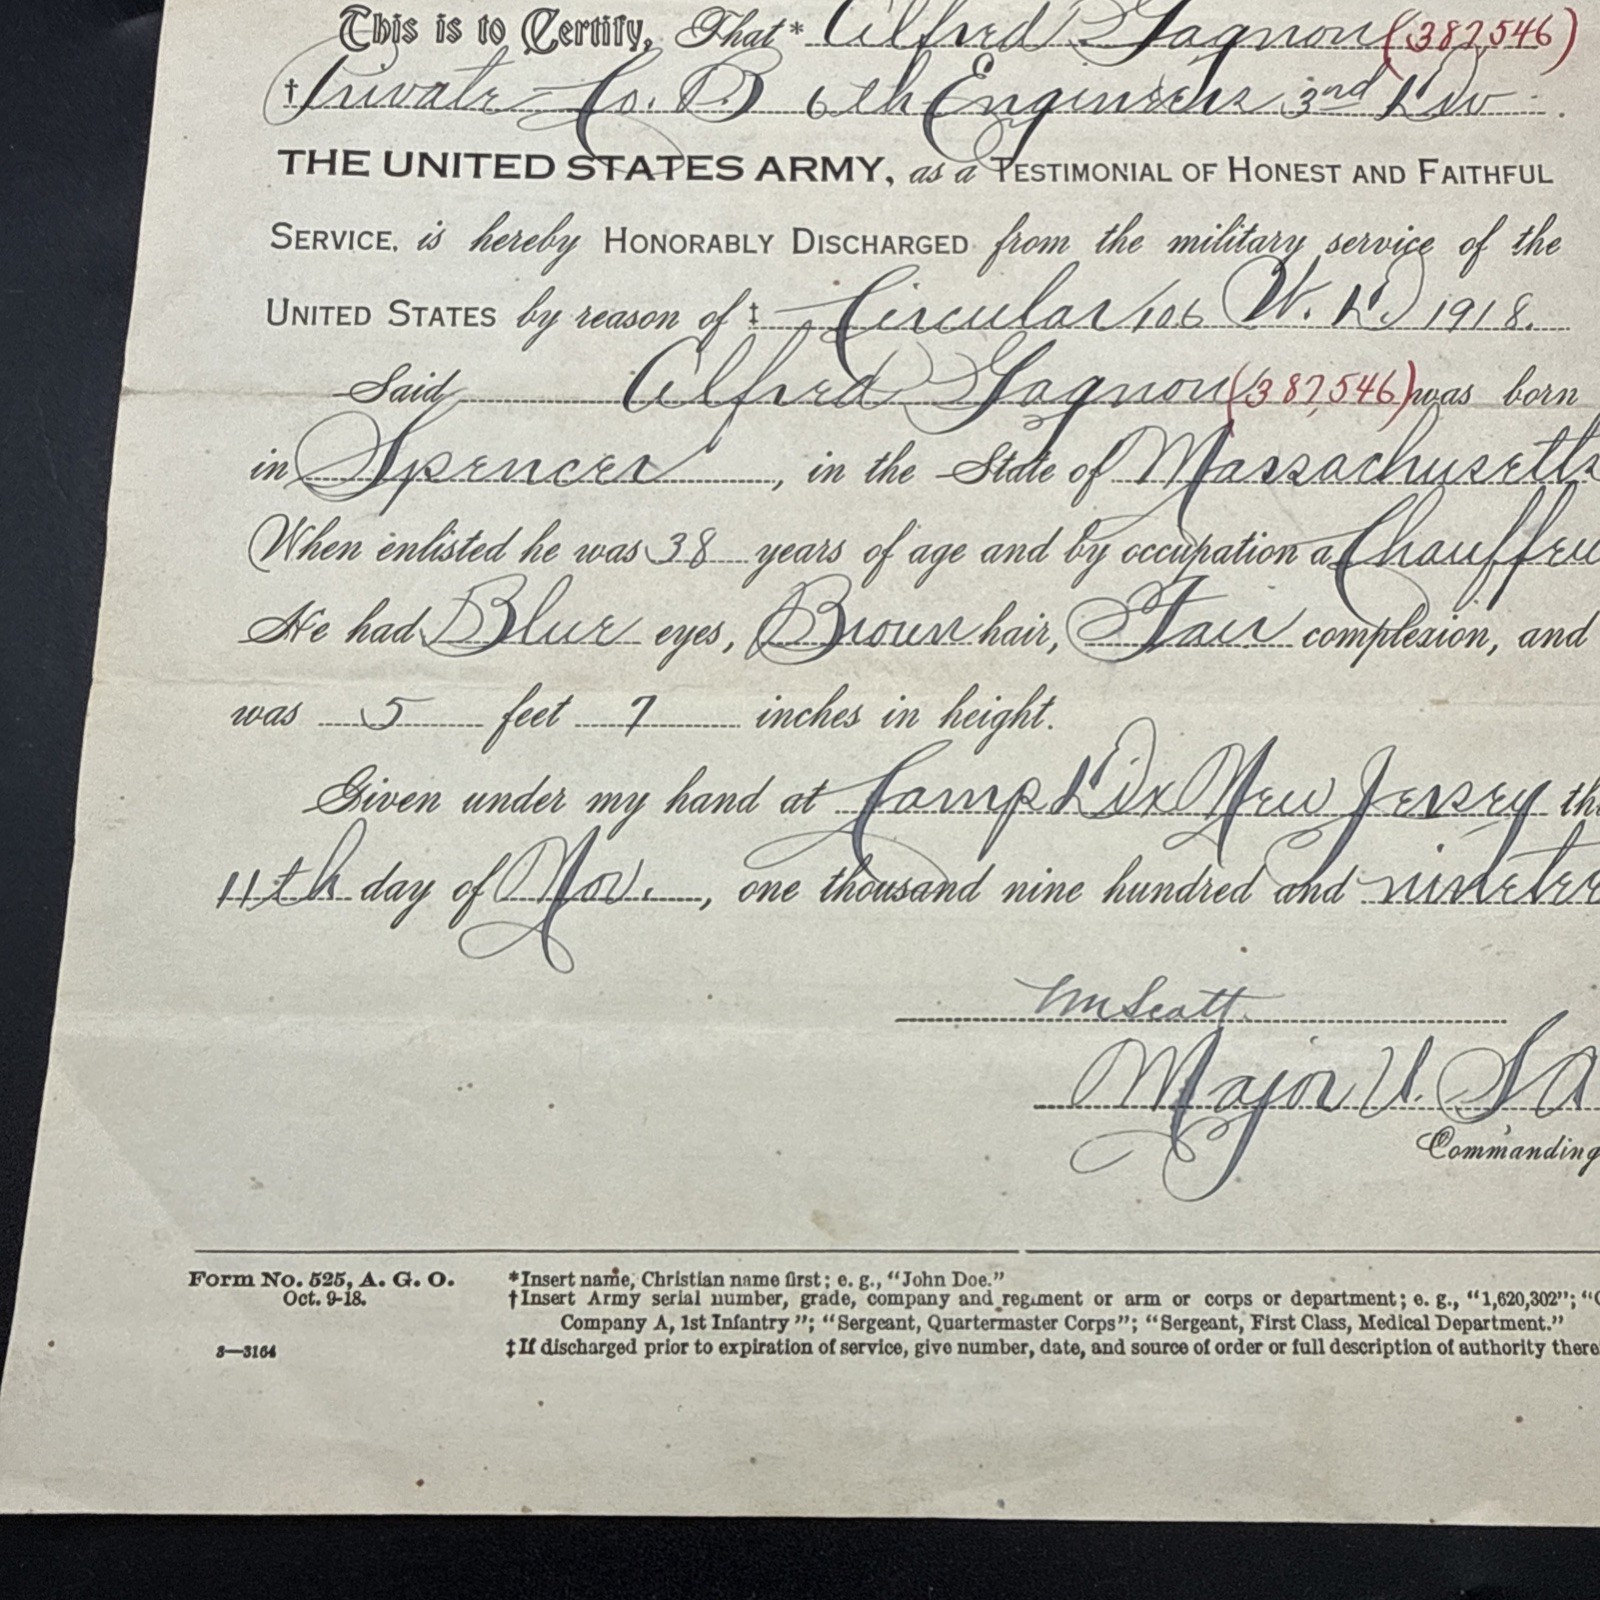 This is to Certify, That* Alfred P Gagnon (387,546)
†Private Co. B 6th Engineers 3rd Div.
THE UNITED STATES ARMY, as a TESTIMONIAL OF HONEST AND FAITHFUL
SERVICE, is hereby HONORABLY DISCHARGED from the military service of the
UNITED STATES by reason of ‡ Circular 106 W. D. 1918.
Said Alfred P Gagnon (387,546) was born
in Spencer, in the State of Massachusetts
When enlisted he was 38 years of age and by occupation a Chauffeu
He had Blue eyes, Brown hair, Fair complexion, and
was 5 feet 7 inches in height.
Given under my hand at Camp Dix New Jersey th
11th day of Nov., one thousand nine hundred and ninetee
Wm Scott
Major U. S A
Commanding
Form No. 525, A. G. O.
Oct. 9-18.
3—3164
*Insert name, Christian name first; e. g., "John Doe."
†Insert Army serial number, grade, company and regiment or arm or corps or department; e. g., "1,620,302"; "C
Company A, 1st Infantry"; "Sergeant, Quartermaster Corps"; "Sergeant, First Class, Medical Department."
‡If discharged prior to expiration of service, give number, date, and source of order or full description of authority there